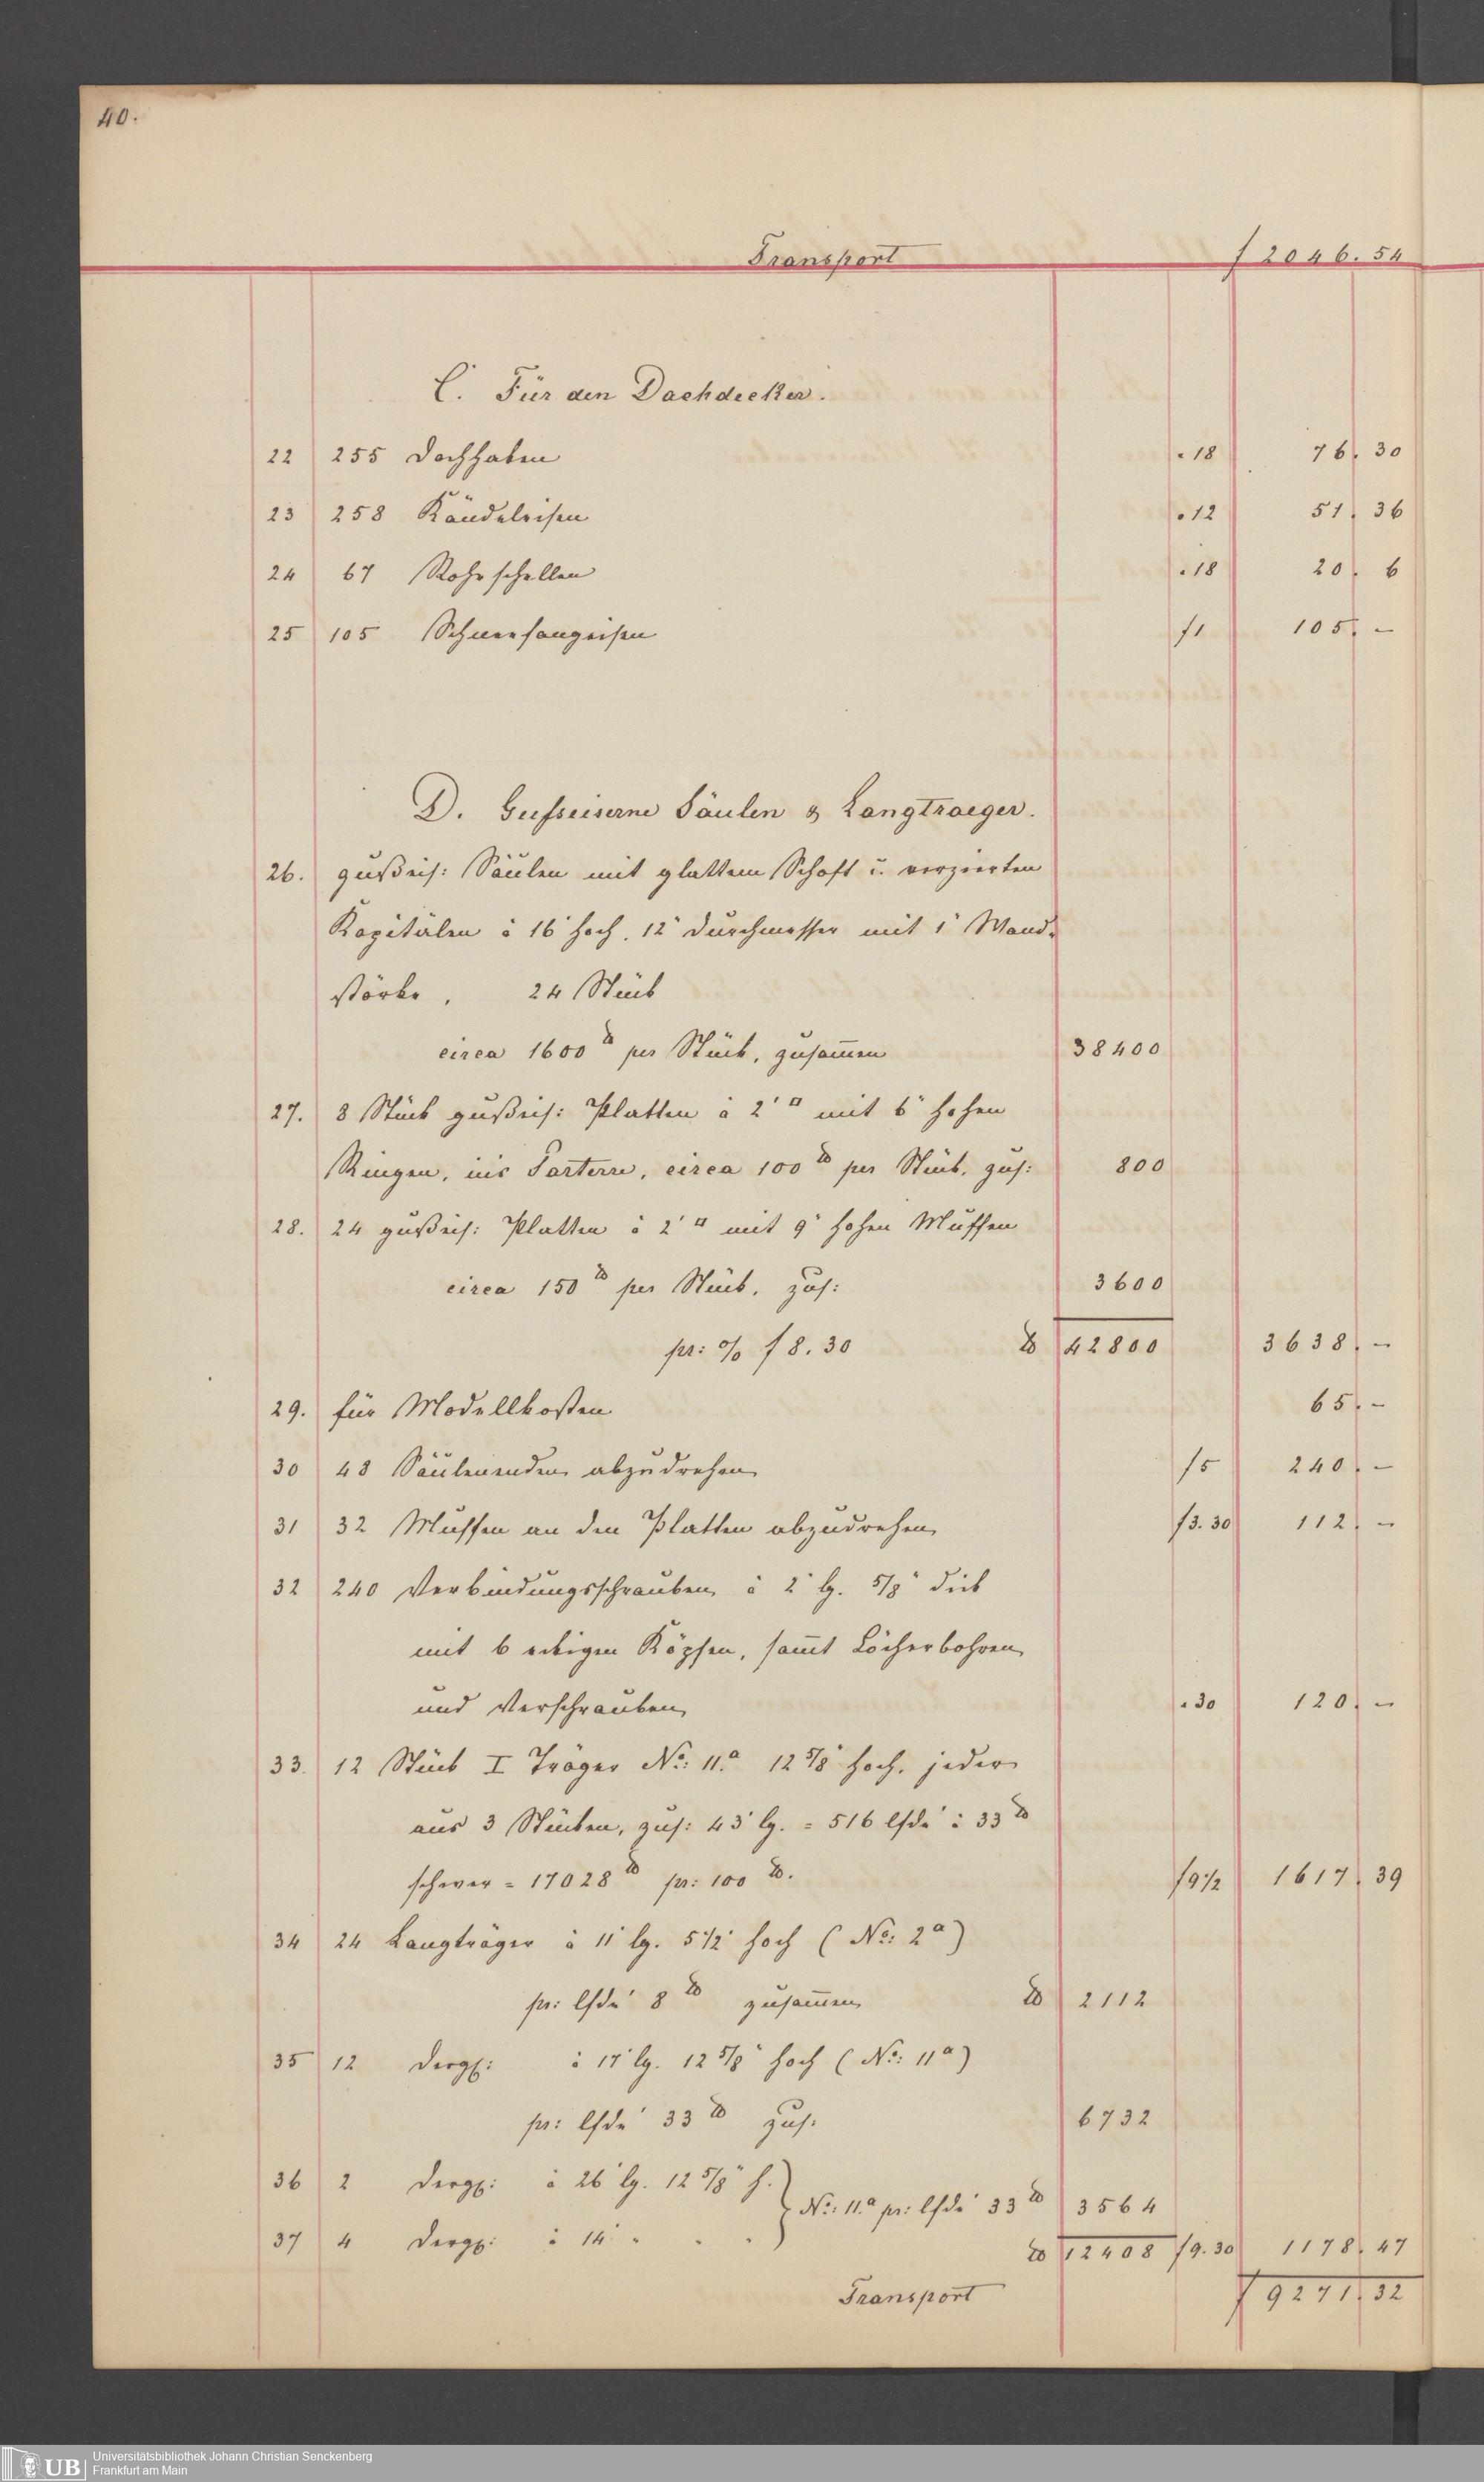 40.
Transport f 2046. 54
C. Für den Dachdecker.
22 255 Dachhaken . 18 76. 30
23 258 Kändeleisen . 12 51. 36
24 67 Rohrschellen . 18 20. 6
25 105 Schneefangeisen f1 105. –
D. Gufseiserne Säulen & Langtraeger.
26. gußeis: Säulen mit glattem Schaft u. verzierten
Kapitälen à 16' hoch, 12" Durchmesser mit 1" Wand-
stärke, 24 Stück
circa 1600 ℔ per Stück, zusam̄en 38400
27. 8 Stück gußeis: Platten à 2' □ mit 6" hohen
Ringen, ins Parterre, circa 100 ℔ per Stück, zus: 800
28. 24 gußeis: Platten à 2' □ mit 9" hohen Muffen
circa 150 ℔ per Stück, zus: 3600
pr: % f 8. 30 ℔ 42800 3638. –
29. für Modellkosten 65. –
30 48 Säulenenden abzudrehen f5 240. –
31 32 Muffen an den Platten abzudrehen f3. 30 112. –
32 240 Verbindungsschrauben à 2" lg. 5/8" dick
mit 6 eckigen Köpfen, sam̄t Löcherbohren
und Verschrauben . 30 120. –
33. 12 Stück I Träger No: 11.a 12 5/8" hoch, jeder
aus 3 Stücken, zus: 43' lg. = 516 lfde' à 33 ℔
schwer = 17028 ℔ pr: 100 ℔. f9 1/2 1617. 39
34 24 Langträger à 11' lg. 5 1/2" hoch (No: 2a)
pr: lfde' 8 ℔ zusam̄en ℔ 2112
35 12 dergl: à 17' lg. 12 5/8" hoch (No: 11a)
pr: lfde' 33 ℔ zus: 6732
36 2 dergl: à 26' lg. 12 5/8" h.
No: 11.a pr: lfde' 33 ℔ 3564
37 4 dergl: à 14' " " "
℔ 12408 f9. 30 1178. 47
Transport f 9271. 32
UB Universitätsbibliothek Johann Christian Senckenberg
Frankfurt am Main